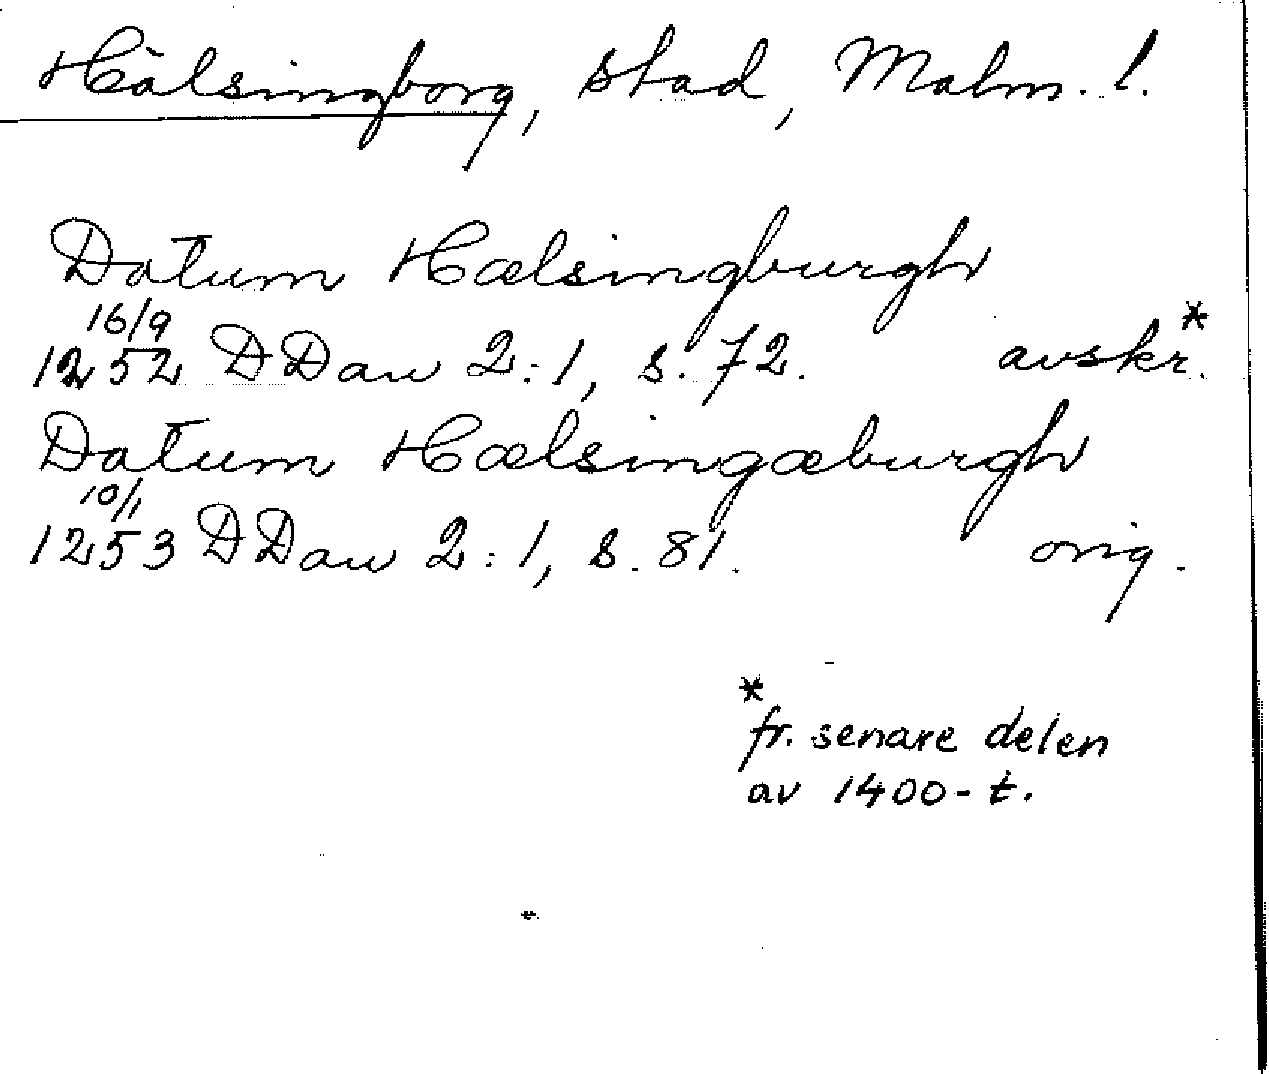 Hälsingborg, stad, Malm. l.
Datum Hælsingburgh
16/9
1252 DDan 2:1, s. 72. avskr.*
Datum Hælsingæburgh
10/1
1253 DDan 2:1, s. 81. orig.
*
fr. senare delen
av 1400-t.